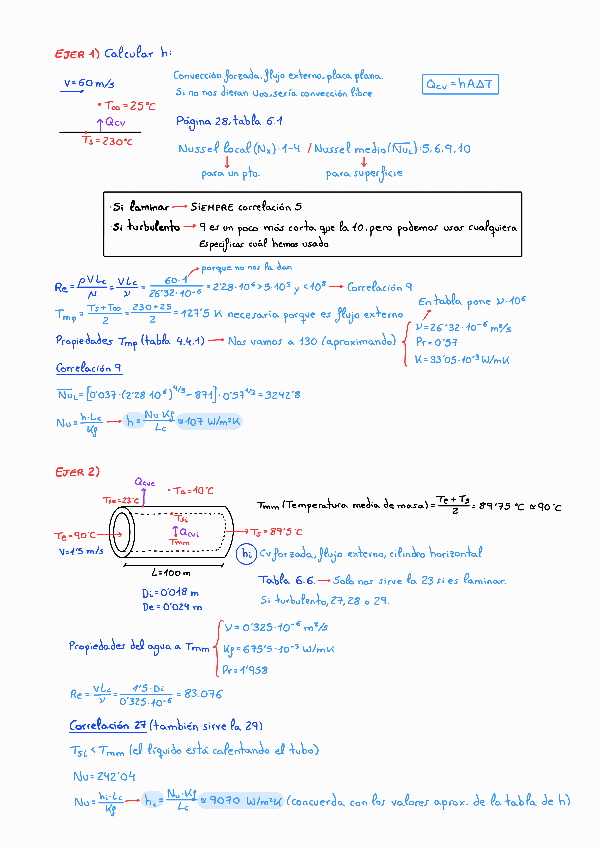 EJER 1) Calcular h:
V = 60 m/s
Convección forzada, flujo externo, placa plana.
Si no nos dieran U∞, sería convección libre.
Qcv = hAΔT
T∞ = 25°C
Qcv
Ts = 230°C
Página 28, tabla 6.1
Nussel local (Nx): 1-4 / Nussel medio (NuL): 5, 6, 9, 10
para un pto. para superficie
· Si laminar → SIEMPRE correlación 5
· Si turbulento → 9 es un poco más corta que la 10, pero podemos usar cualquiera
Especificar cuál hemos usado
porque no nos la dan
Re = ρVLc/μ = VLc/ν = 60·1/26'32·10⁻⁶ = 2'28·10⁶ > 5·10⁵ y < 10⁸ → Correlación 9
En tabla pone ν·10⁶
Tmp = Ts+T∞/2 = 230+25/2 = 127'5 K necesaria porque es flujo externo
ν = 26'32·10⁻⁶ m²/s
Propiedades Tmp (tabla 4.4.1) → Nos vamos a 130 (aproximando)
Pr = 0'57
K = 33'05·10⁻³ W/mK
Correlación 9
NuL = [0'037·(2'28·10⁶)^4/5 − 871]·0'57^1/3 = 3242'8
Nu = h·Lc/Kf → h = Nu·Kf/Lc ≈ 107 W/m²K
EJER 2)
Qcve
Tse = 23°C
Ta = 10°C
Tsi
Te = 90°C
Qcvi
Tmm
Ts = 89'5°C
V = 1'5 m/s
L = 100 m
Di = 0'018 m
De = 0'024 m
Tmm (Temperatura media de masa) = Te + Ts/2 = 89'75 °C ≈ 90°C
hi Cv forzada, flujo externo, cilindro horizontal
Tabla 6.6. → Solo nos sirve la 23 si es laminar.
Si turbulento, 27, 28 o 29.
ν = 0'325·10⁻⁶ m²/s
Propiedades del agua a Tmm
Kf = 675'5·10⁻³ W/mK
Pr = 1'958
Re = VLc/ν = 1'5·Di/0'325·10⁻⁶ = 83.076
Correlación 27 (también sirve la 29)
Tsi < Tmm (el líquido está calentando el tubo)
Nu = 242'04
Nu = hi·Lc/Kf → hi = Nu·Kf/Lc ≈ 9070 W/m²K (concuerda con los valores aprox. de la tabla de h)